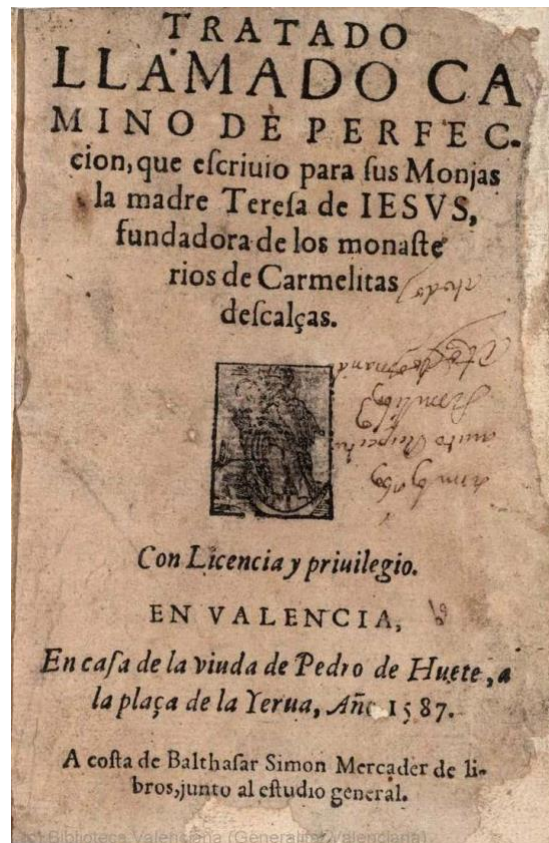 TRATADO
LLAMADO CA
MINO DE PERFEC-
cion, que eſcriuio para ſus Monjas
la madre Tereſa de IESVS,
fundadora de los monaſte
rios de Carmelitas
deſcalças.
Con Licencia y priuilegio.
EN VALENCIA,
En caſa de la viuda de Pedro de Huete, a
la plaça de la Yerua, Año 1587.
A coſta de Balthaſar Simon Mercader de li-
bros, junto al eſtudio general.
(c) Biblioteca Valenciana (Generalitat Valenciana)